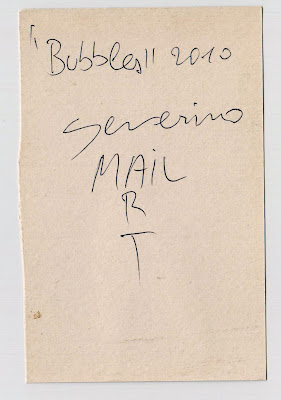 "Bubbles" 2010
Severino
MAIL
R
T